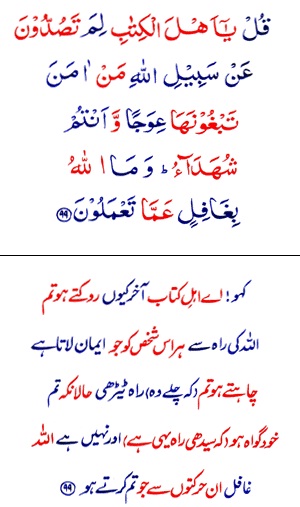 قُلْ يٰۤاَهْلَ الْكِتٰبِ لِمَ تَصُدُّوْنَ
عَنْ سَبِيْلِ اللّٰهِ مَنْ اٰمَنَ
تَبْغُوْنَهَا عِوَجًا وَّ اَنْتُمْ
شُهَدَآءُ ؕ وَ مَا اللّٰهُ
بِغَافِلٍ عَمَّا تَعْمَلُوْنَ ﴿۹۹﴾
کہو! اے اہلِ کتاب آخر کیوں روکتے ہو تم
اللہ کی راہ سے ہر اس شخص کو جو ایمان لاتا ہے
چاہتے ہو تم (کہ چلے وہ) راہ ٹیڑھی حالانکہ تم
خود گواہ ہو (کہ سیدھی راہ یہی ہے) اور نہیں ہے اللہ
غافل ان حرکتوں سے جو تم کرتے ہو ﴿۹۹﴾